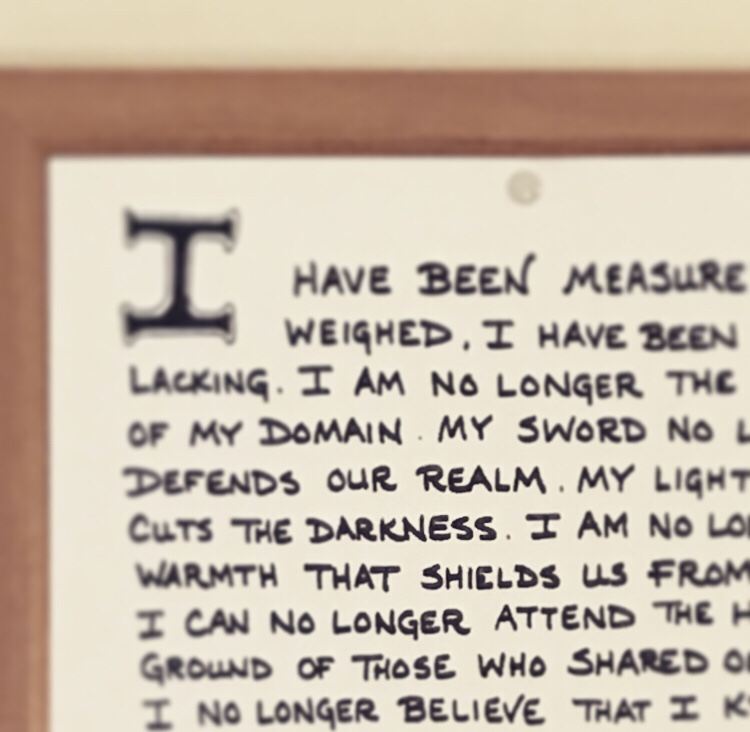 I HAVE BEEN MEASURE
WEIGHED. I HAVE BEEN
LACKING. I AM NO LONGER THE
OF MY DOMAIN. MY SWORD NO L
DEFENDS OUR REALM. MY LIGHT
CUTS THE DARKNESS. I AM NO LO
WARMTH THAT SHIELDS US FROM
I CAN NO LONGER ATTEND THE H
GROUND OF THOSE WHO SHARED O
I NO LONGER BELIEVE THAT I K